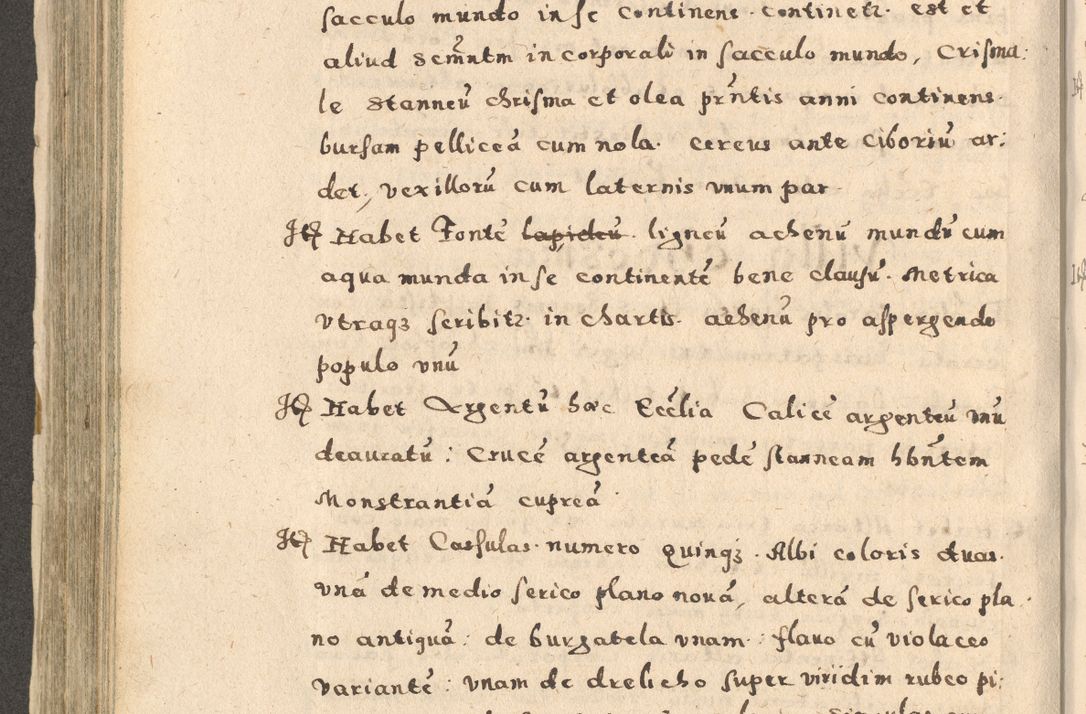 sacculo mundo in se continens continetz. est et
aliud scm̃ntm in corporali in sacculo mundo, Crisma:
le stanneũ chrisma et olea prñtis anni continens.
bursam pelliceã cum nola. cereus ante ciboriũ ar:
det, vexillorũ cum laternis vnum par.
Itẽ Habet Fontẽ lapideũ ligneũ aehenũ mundũ cum
aqua munda in se continentẽ bene clausũ. Metrica
vtraqz scribitz. in chartis. aehenũ pro aspergendo
populo vnũ
Itẽ Habet Argentũ haec Ecclia Calicẽ argenteũ vnũ
deauratũ: Crucẽ argenteã pedẽ stanneam hbñtem
Monstrantiã cupreã
Itẽ Habet Casulas numero quinqz. Albi coloris duas.
vnã de medio serico plano nouã, alterã de serico pla
no antiquã: de burgatela vnam: flauo cũ violaceo
variantẽ: vnam de drelicho super viridim rubeo pi: